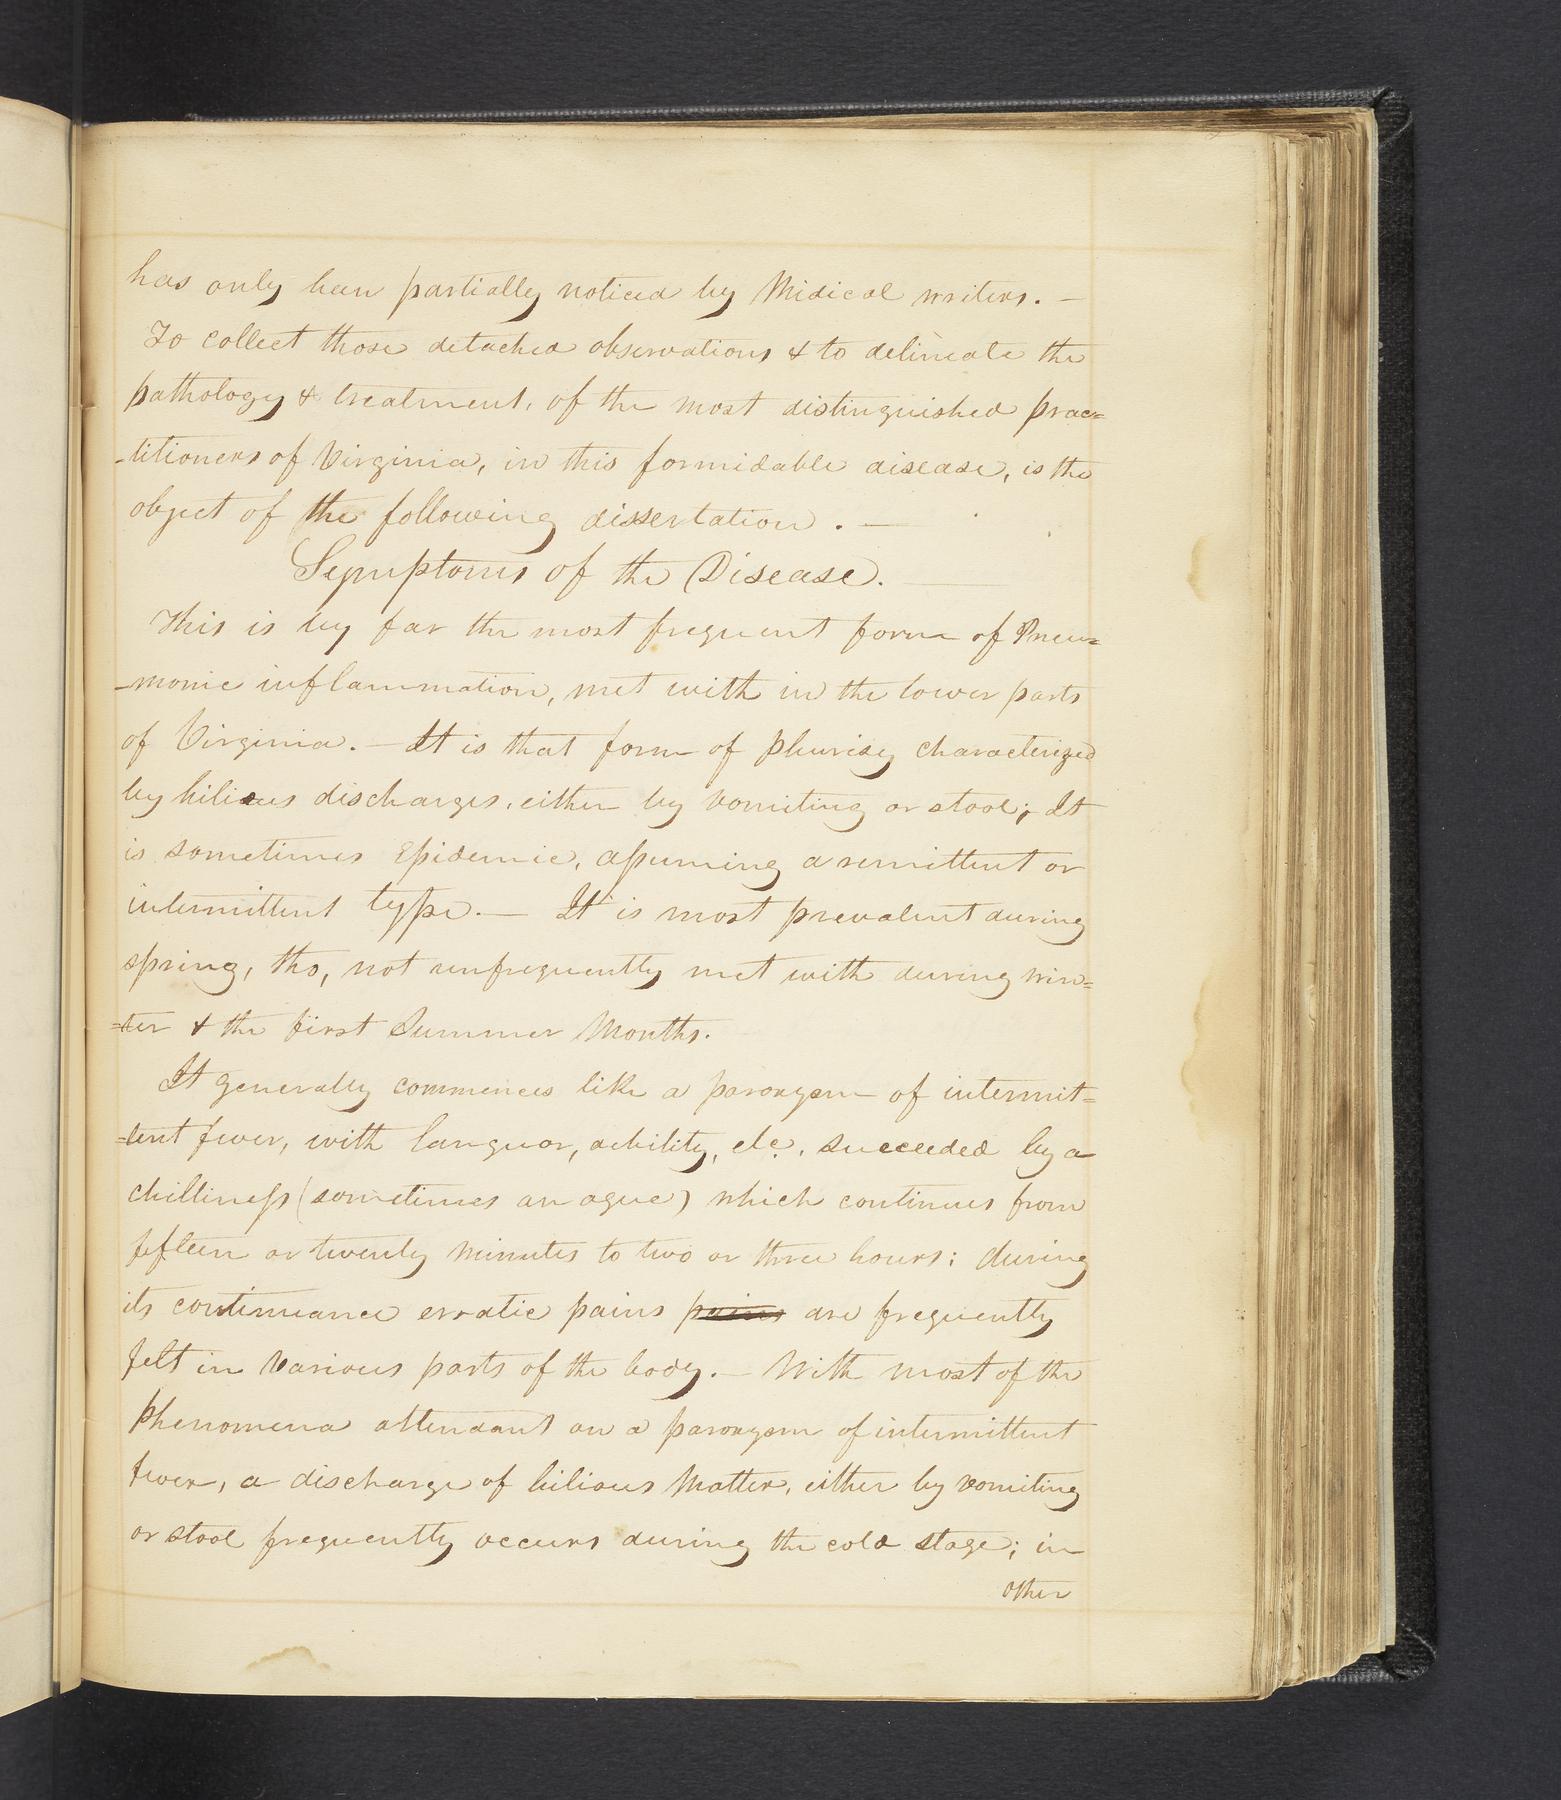 has only been partially noticed by Medical writers. —
To collect those detached observations & to delineate the
pathology & treatment, of the most distinguished prac=
-titioners of Virginia, in this formidable disease, is the
object of the following dissertation . —
Symptoms of the Disease. —
This is by far the most frequent form of Pneu=
-monic inflammation, met with in the lower parts
of Virginia. — It is that form of pleurisy characterized
by bilious discharges, either by vomiting or stool; It
is sometimes Epidemic, assuming a remittent or
intermittent type. — It is most prevalent during
spring, tho, not unfrequently met with during win=
=ter & the first Summer Months.
It generally commences like a paroxysm of intermit=
=tent fever, with languor, debility, etc, succeeded by a
chilliness (sometimes an ague) which continues from
fifteen or twenty minutes to two or three hours; during
its continuance erratic pains pains are frequently
felt in various parts of the body. — With most of the
phenomena attendant on a paroxysm of intermittent
fever, a discharge of bilious matter, either by vomiting
or stool frequently occurs during the cold stage; in
other